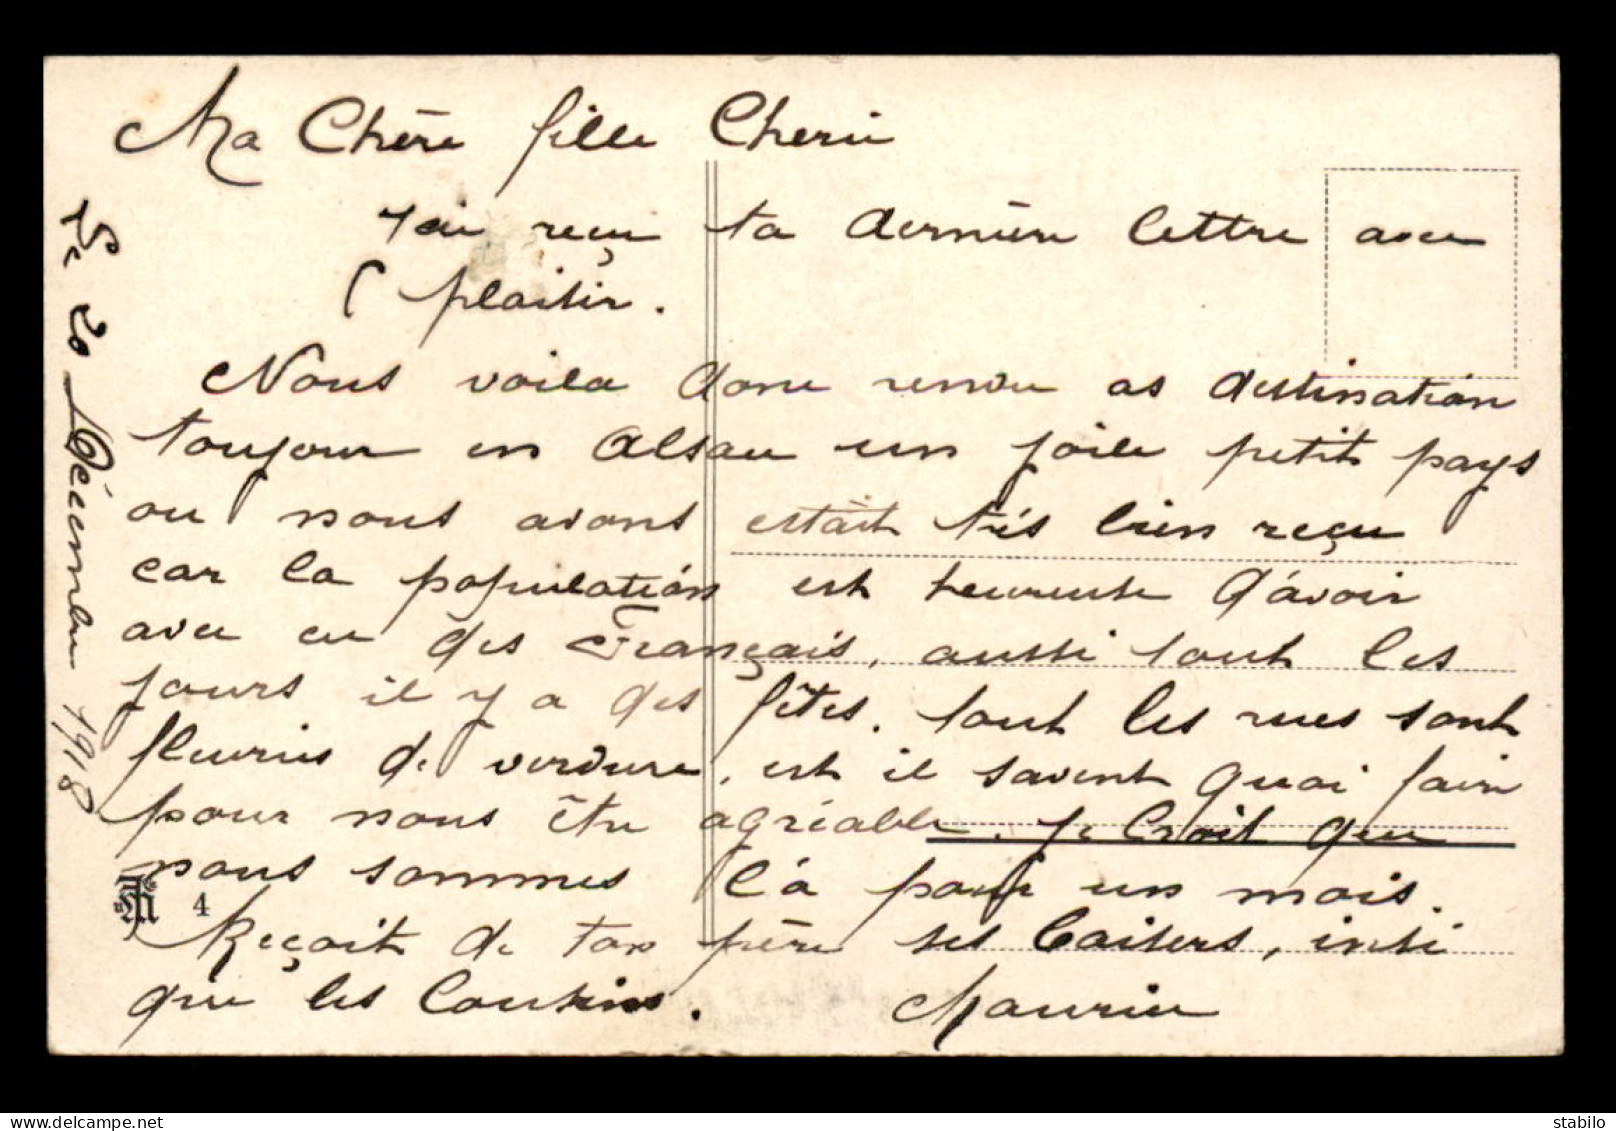 Ma Chère fille Cherie
J'ai reçu ta dernière lettre avec
plaisir.
Nous voila donc rendu as destination
toujour en Alsace un joile petit pays
ou nous avons estait très bien reçu
car la population est heureuse d'avoir
avec eu des Français, aussi tout les
jours il y a des fêtes. tout les rues sont
fleuries de verdure, est il savent quoi faire
pour nous être agréable. Je Croit que
nous sommes là pour un mois.
Reçoit de ton père ses baisers, insi
que les Cousins. Maurice
Le 20 Décembre 1918
4
stabilo_
Delcampe.net